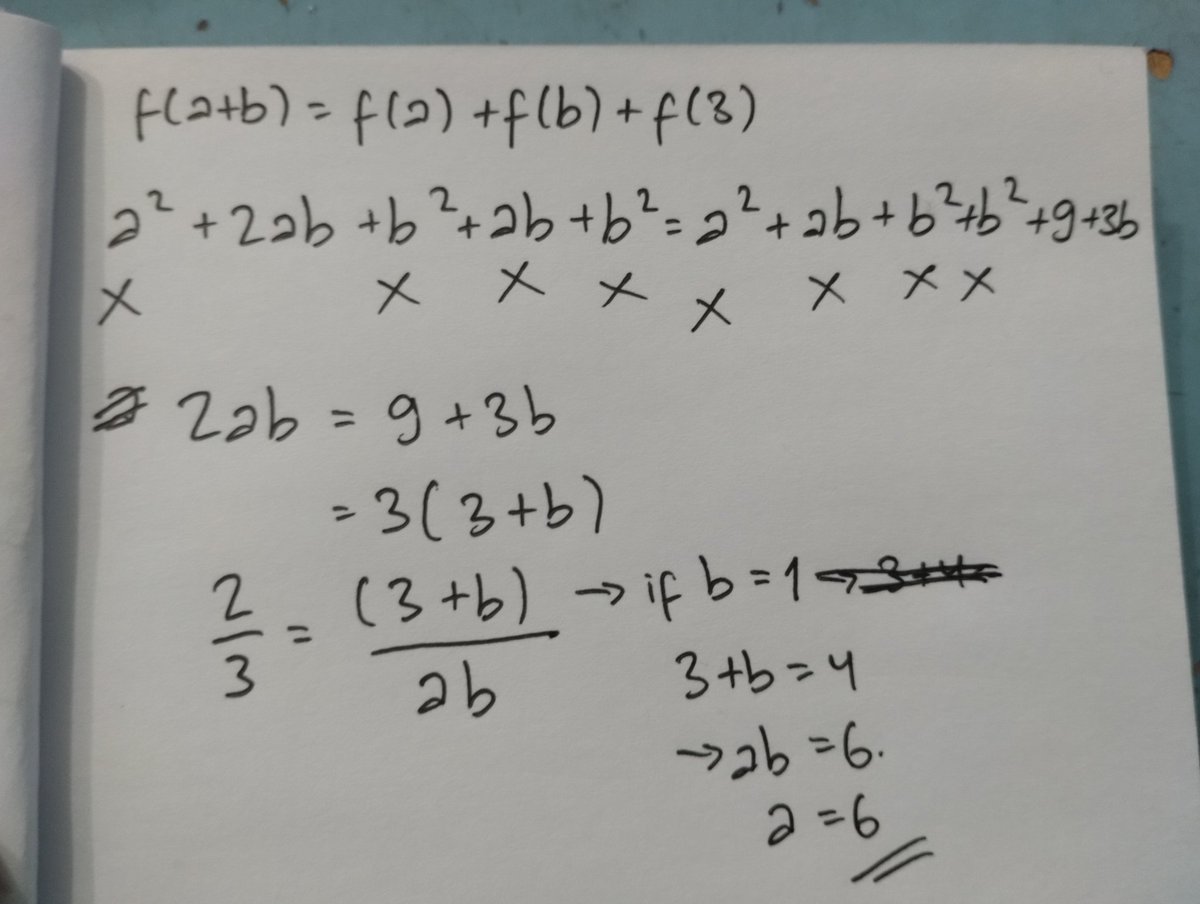 f(a+b) = f(a) + f(b) + f(3)
a² + 2ab + b² + ab + b² = a² + ab + b² + b² + 9 + 3b
x x x x x x x x
2ab = 9 + 3b
= 3(3+b)
2/3 = (3+b)/ab → if b = 1
3+b = 4
→ ab = 6.
a = 6